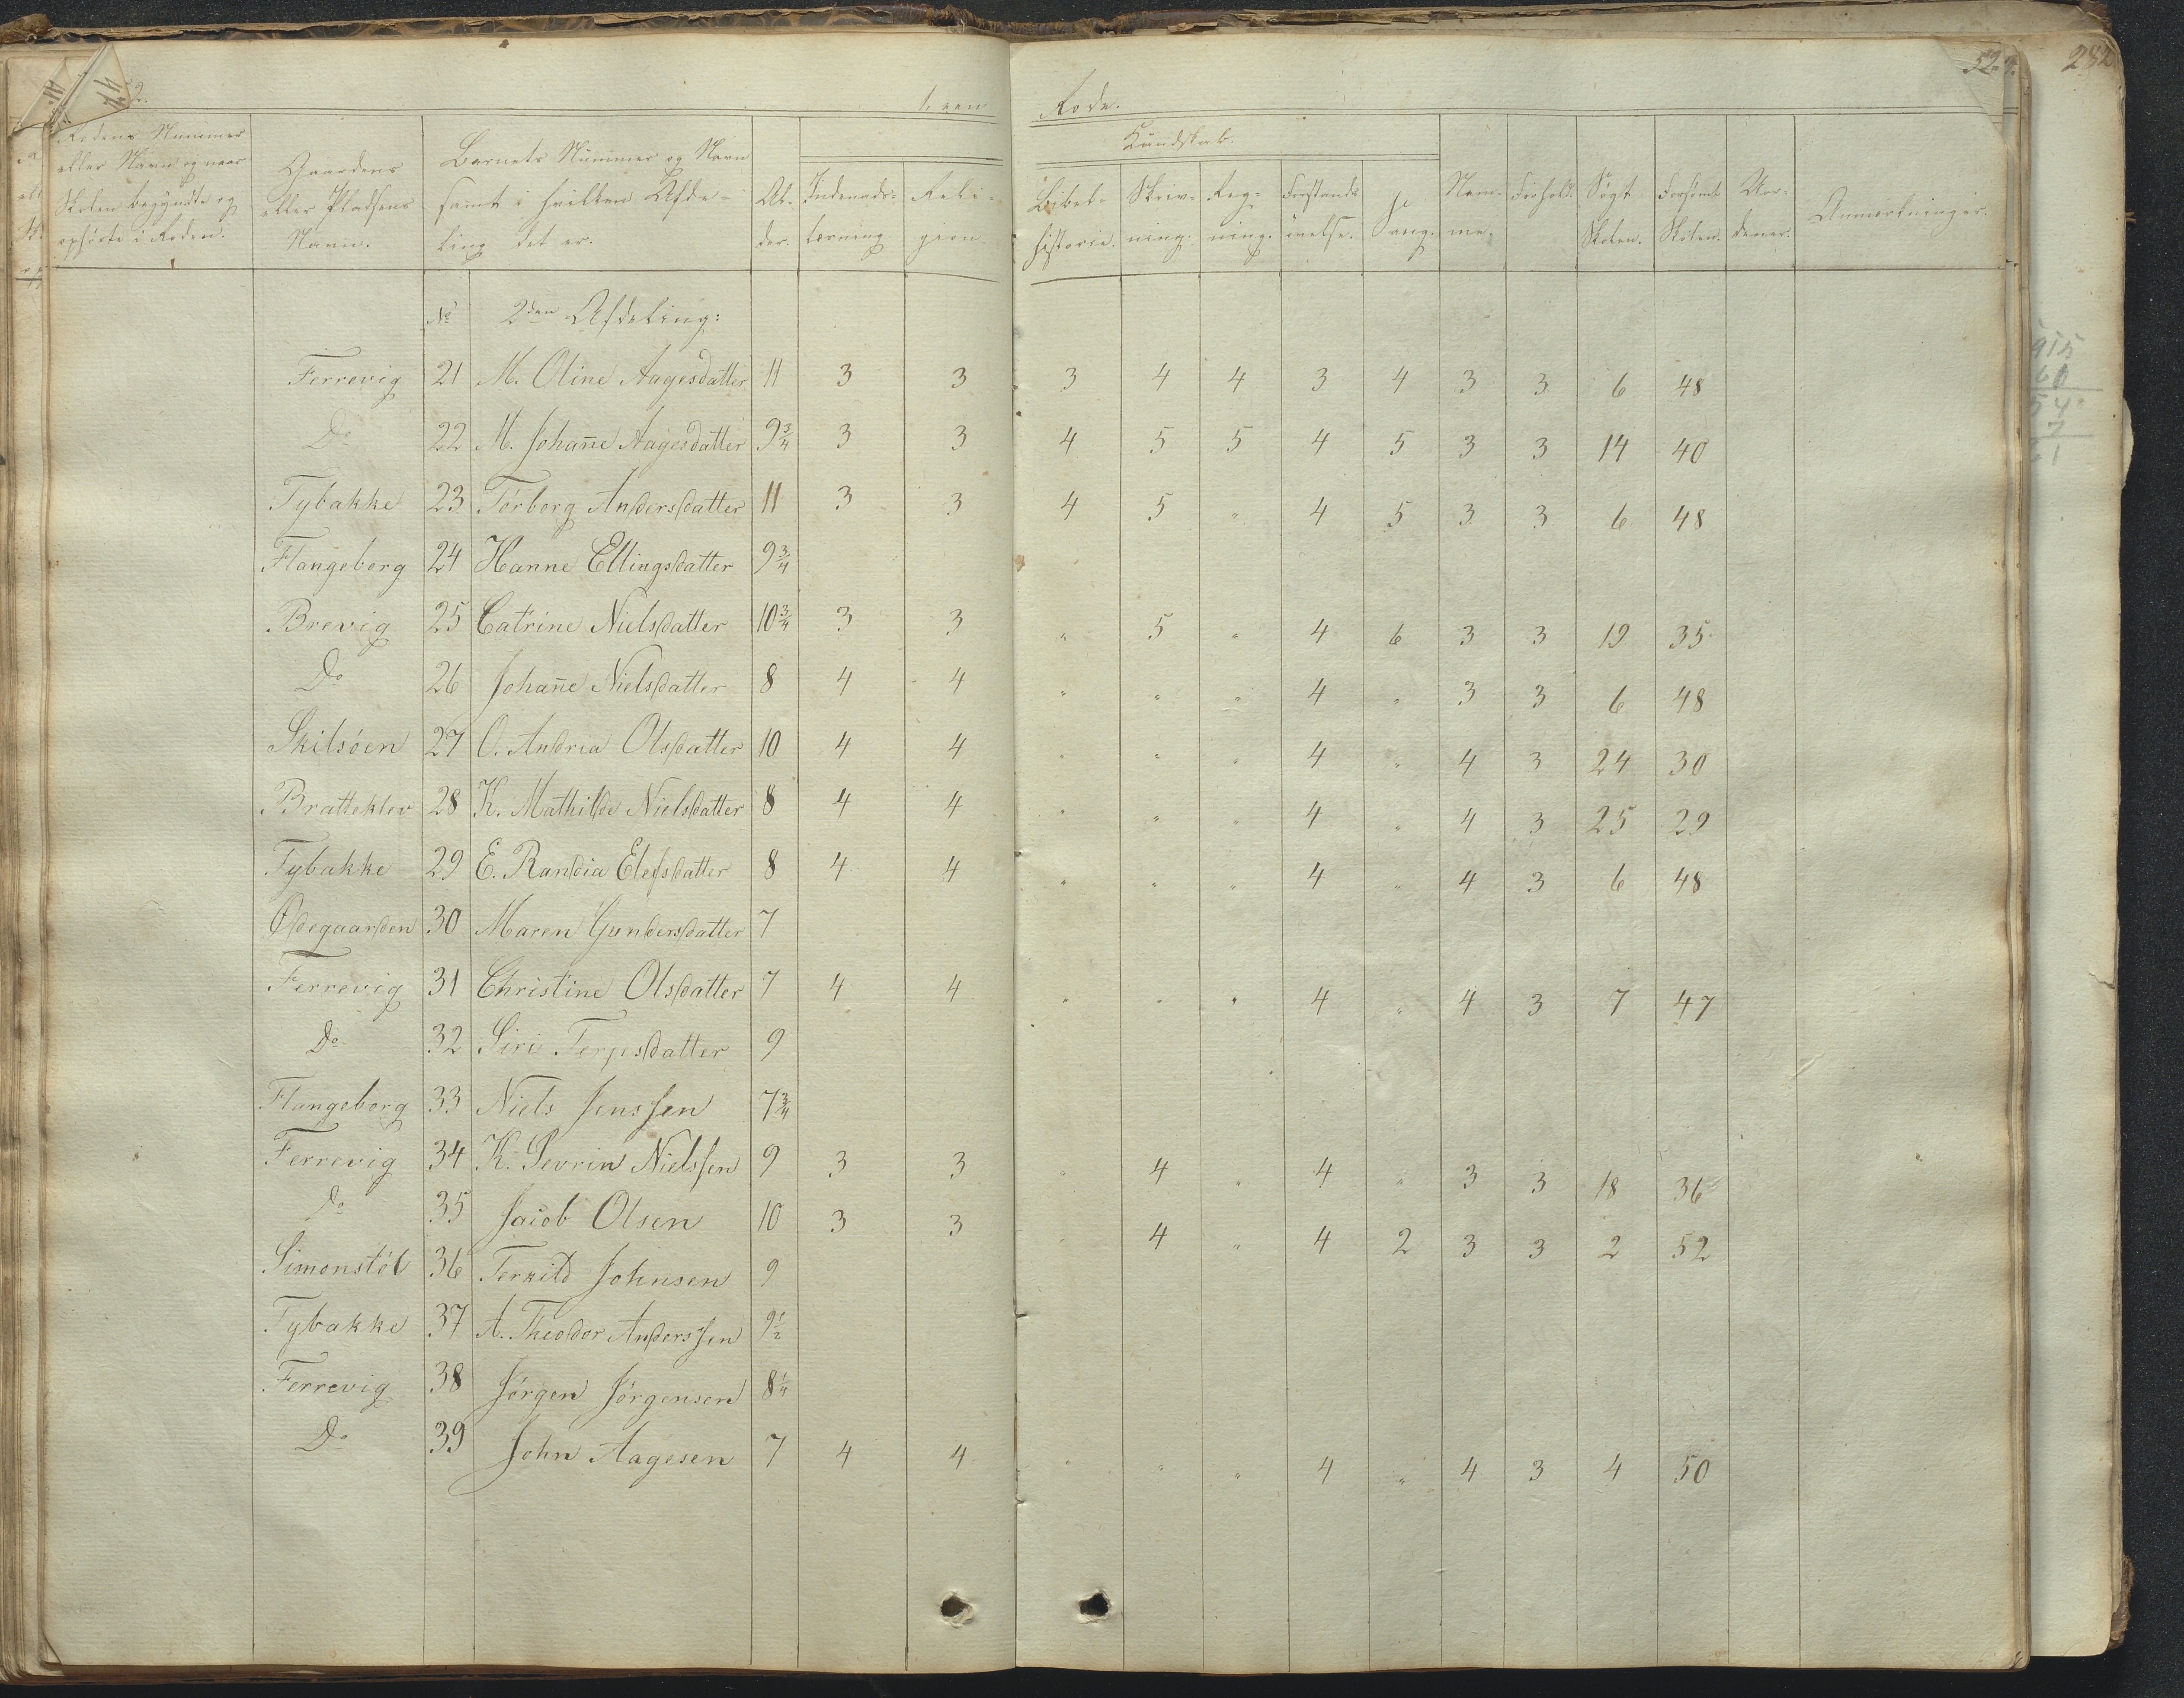 1. een Rode.
Rodens Nummer eller Navn og naar Skolen begyndte og ophørte i Roden.
Gaardens eller Pladsens Navn.
Barnets Nummer og Navn samt i hvilken Afdeling det er.
Alder.
Indenadslæsning.
Religion.
Kundskab.
Bibelhistorie.
Skrivning.
Regning.
Forstandsøvelse.
Sang.
Nemme.
Forhold.
Søgt Skolen.
Forsømt Skolen.
Uordener.
Anmærkninger.
No 2den Afdeling:
Ferrevig 21 M. Oline Aagesdatter 11 3 3 3 4 4 3 4 3 3 6 48
Do 22 M. Johan̄e Aagesdatter 9 3/4 3 3 4 5 5 4 5 3 3 14 40
Tybakke 23 Torborg Andersdatter 11 3 3 4 5 " 4 5 3 3 6 48
Flangeborg 24 Hanne Ellingsdatter 9 3/4
Brevig 25 Catrine Nielsdatter 10 3/4 3 3 " 5 " 4 6 3 3 19 35
Do 26 Johan̄e Nielsdatter 8 4 4 " " " 4 " 3 3 6 48
Skilsöen 27 O. Andria Olsdatter 10 4 4 " " " 4 " 4 3 24 30
Bratteklev 28 K. Mathilde Nielsdatter 8 4 4 " " " 4 " 4 3 25 29
Tybakke 29 E. Randia Elefsdatter 8 4 4 " " " 4 " 4 3 6 48
Ødegaarden 30 Maren Gundersdatter 7
Ferrevig 31 Christine Olsdatter 7 4 4 " " " 4 " 4 3 7 47
Do 32 Siri Terjesdatter 9
Flangeborg 33 Niels Jenssen 7 3/4
Ferrevig 34 K. Sevrin Nielssen 9 3 3 " 4 " 4 " 3 3 18 36
Do 35 Jacob Olsen 10 3 3 " 4 " 4 2 3 3 2 52
Simonstöl 36 Terkild Johnsen 9
Tybakke 37 A. Theodor Anderssen 9 1/2
Ferrevig 38 Jörgen Jörgensen 8 1/4
Do 39 John Aagesen 7 4 4 " " " 4 " 4 3 4 50